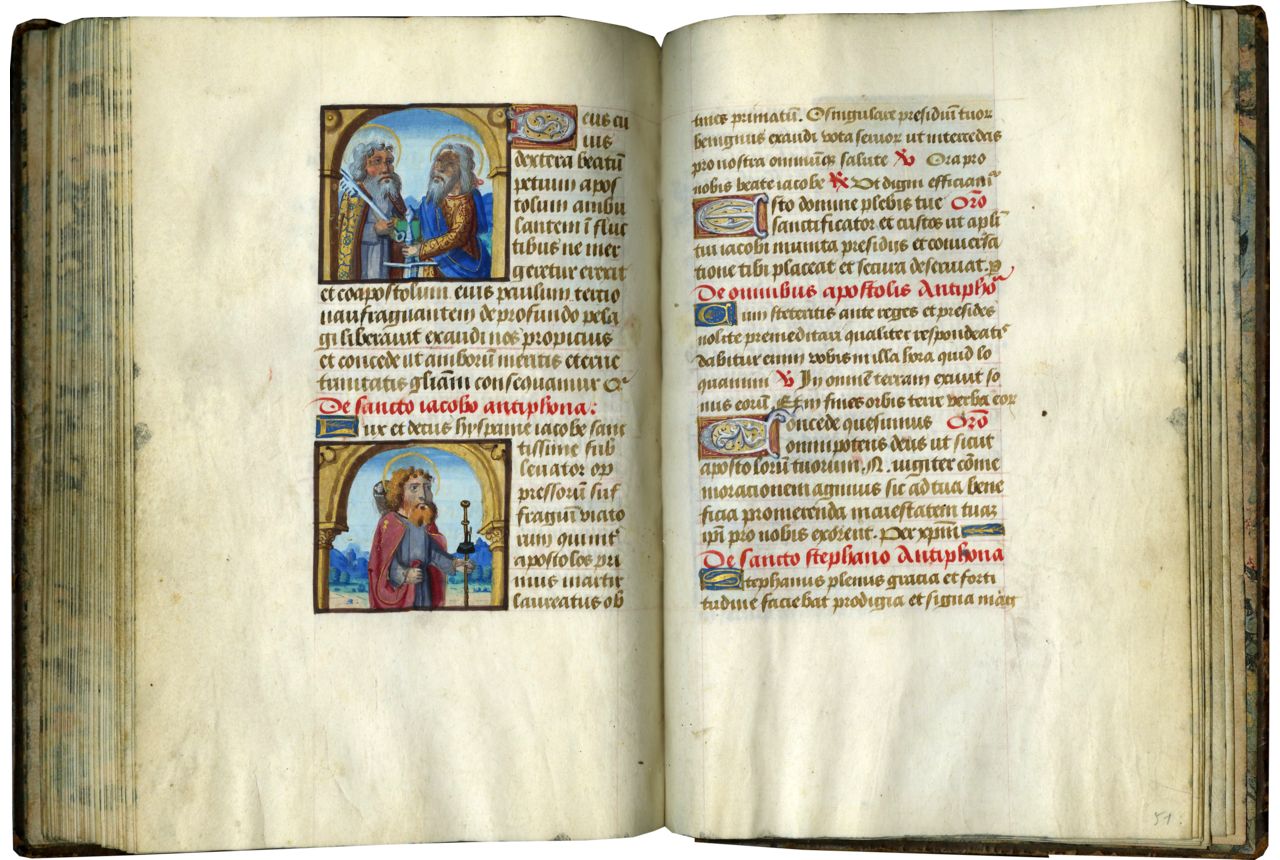 Deus cu
ius
dextera beatū
petrum apos
tolum ambu
lantem ī fluc
tibus ne mer
geretur erexit
et coapostolum eius paulum tertio
naufragantem de profundo pela
gi liberavit exaudi nos propicius
et concede ut amborū meritis eterne
trinitatis gliam consequamur Q
De sancto iacobo antiphona:
Lux et decus hyspanie iacobe sanc
tissime sub
levator op
pressorū suf
fragiū viato
rum qui int
apostolos pri
mus martir
laureatus ob
tines primatū. O singulare presidiū tuor
benignus exaudi vota servor ut intercedas
pro nostra omniumq salute ℣ Ora pro
nobis beate iacobe ℟ Ut digni efficiam
Esto domine plebis tue Oro
sanctificator et custos ut apli
tui iacobi munita presidiis et conversa
tione tibi placeat et secura deserviat. p
De omnibus apostolis Antipho
Cum steteritis ante reges et presides
nolite premeditari qualiter respondeatis
dabitur enim vobis in illa hora quid lo
quamini ℣ In omnē terram exivit so
nus eorū. Et in fines orbis terre verba eor
Concede quesumus Oro
omnipotens deus ut sicut
apostolorum tuorum .N. iugiter cōme
morationem agimus sic ad tua bene
ficia promerenda maiestatem tuaz
ipi pro nobis exorent. Per xpm
De sancto stephano Antiphona
Stephanus plenus gracia et forti
tudine faciebat prodigia et signa mag
51.